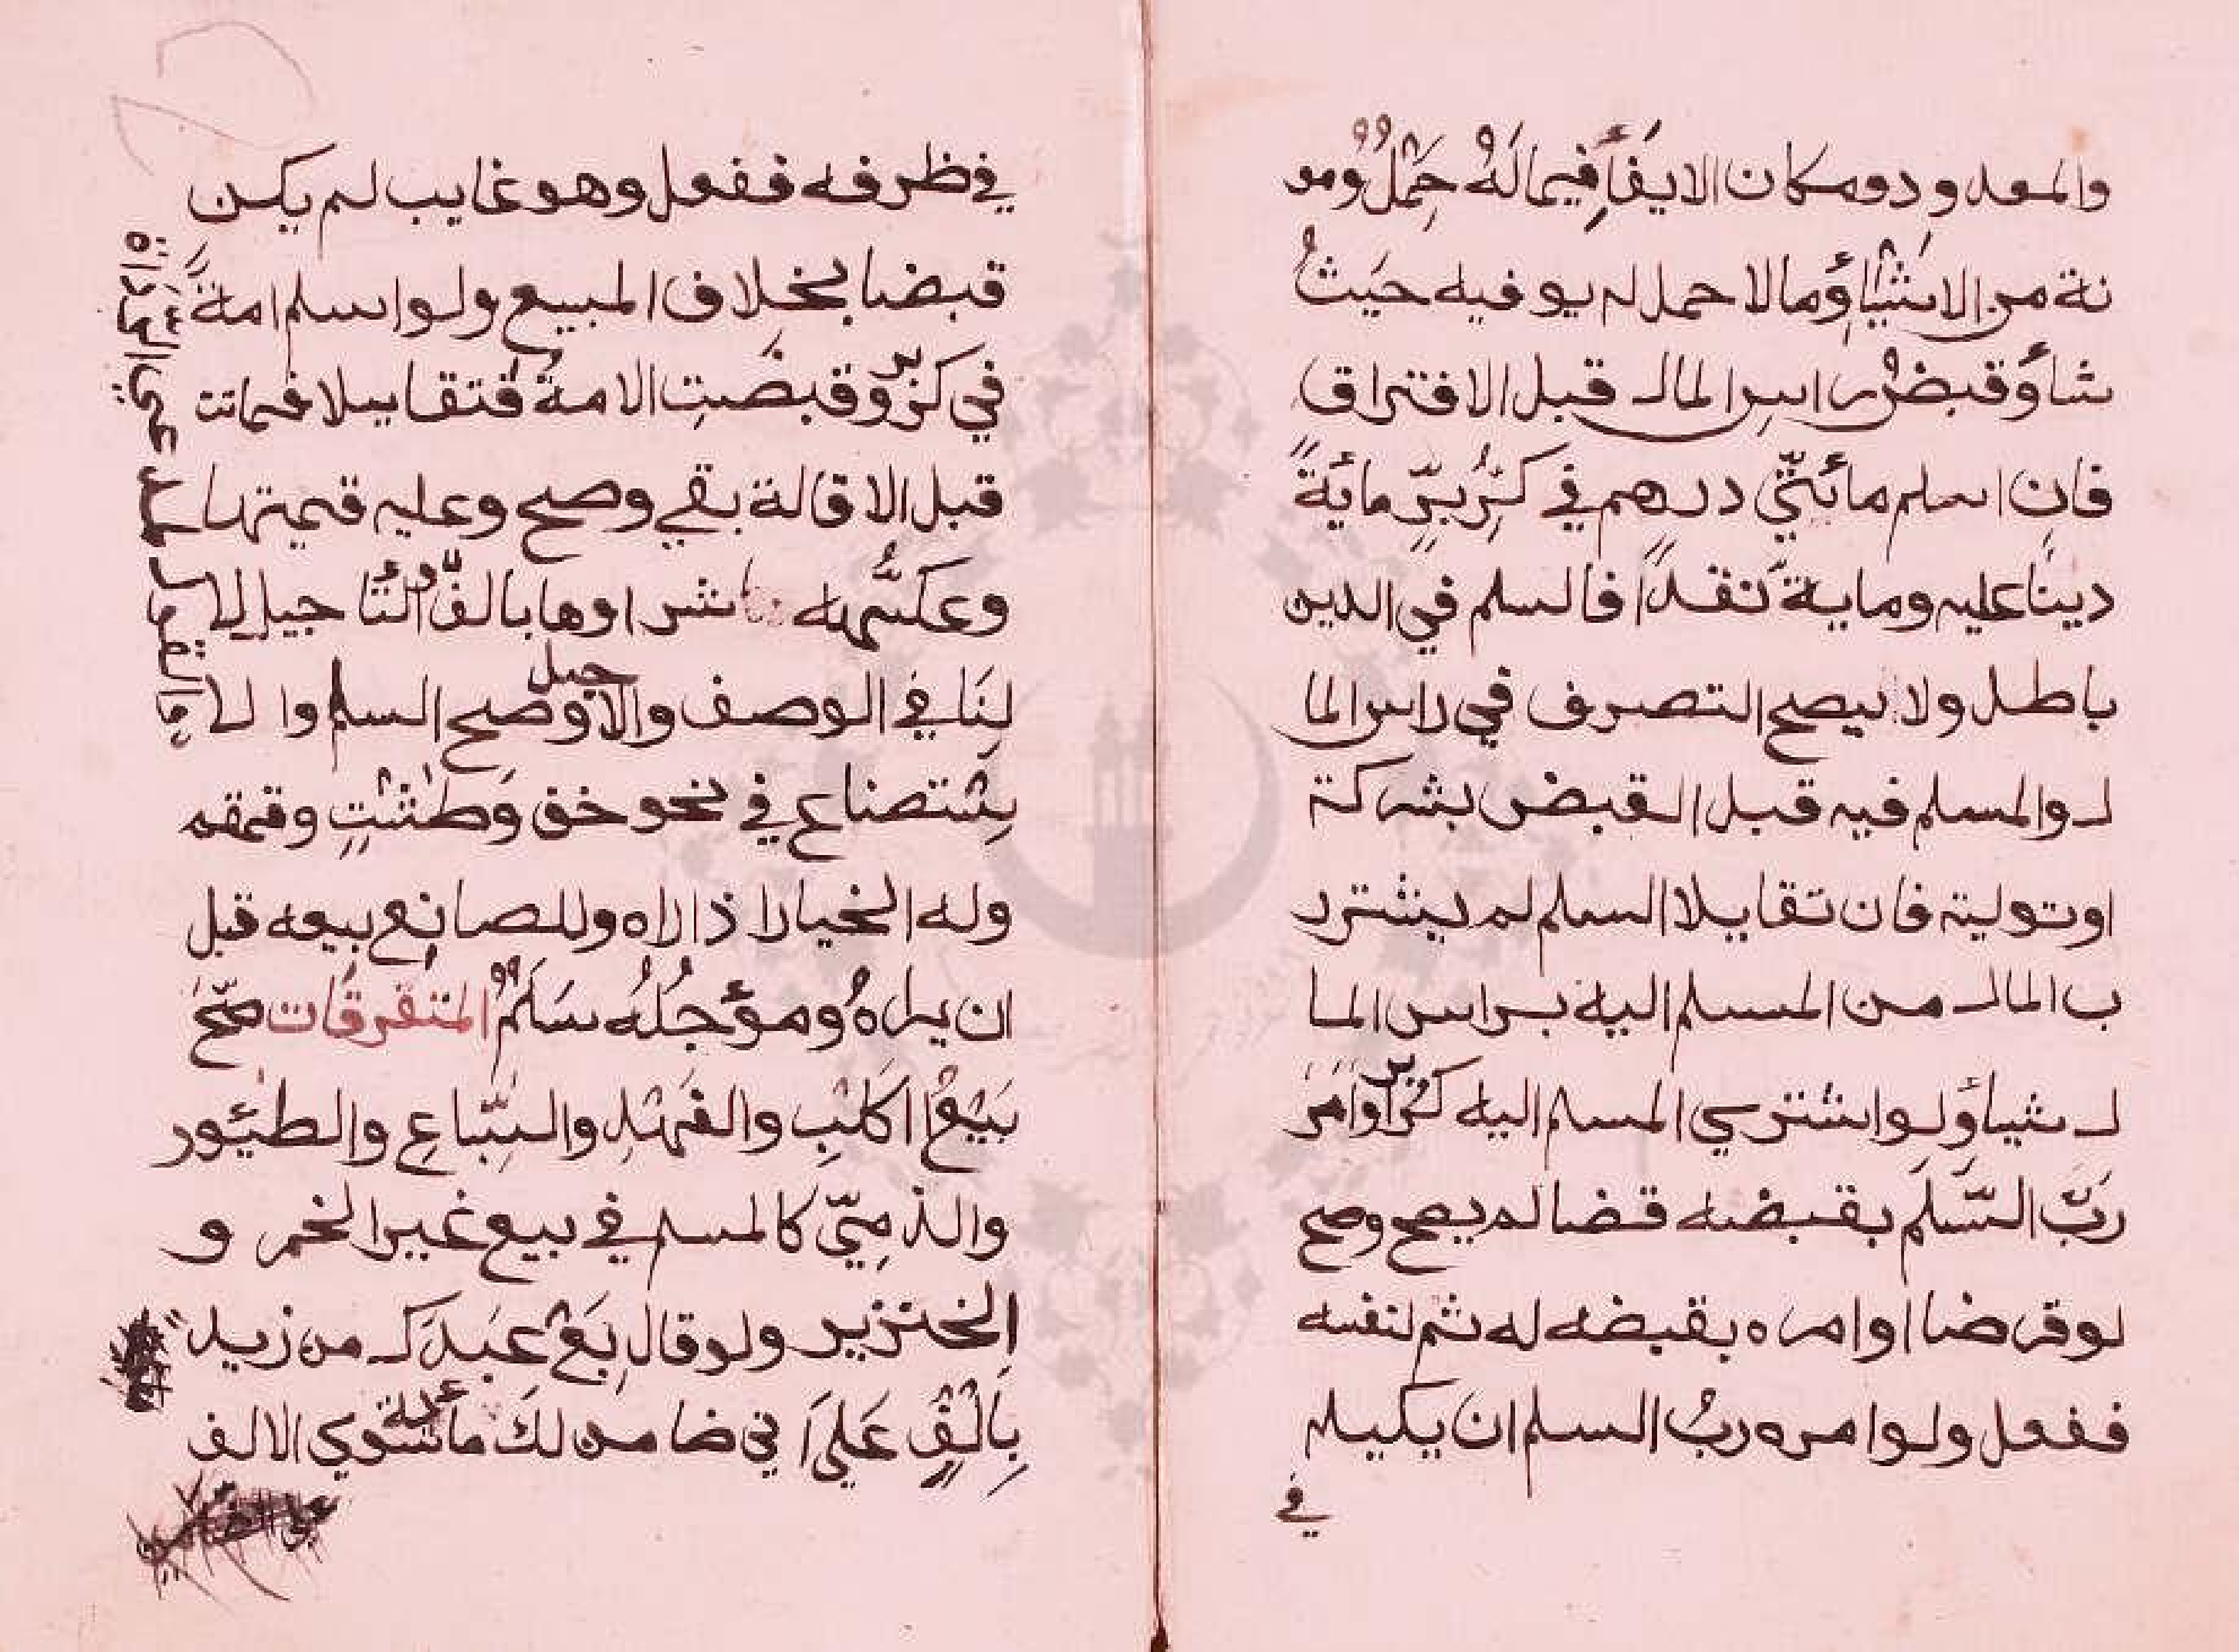 والمعدودومكان الايفأفيما لَهُ حِمْلٌ ومو
نة من الاشيأومالا حمل له يوفيه حَيثُ
شأوقبض راس المال قبل الافتراق
فان اسلم مائتي درهم في كرّ برّ مايَة
دينًا عليه وماية نقدًا فالسلم في الدين
باطل ولا يصح التصرف في راس الما
ل والمسلم فيه قبل القبض بشركة
او تولية فان تقايلا السلم لم يشتر
ب المال من المسلم اليه براس الما
ل شيأ ولو اشتري المسلم اليه كرّا وامر
ربّ السّلم بقبضه قضا لم يصح وصح
لو قرضا او امره بقبضه له ثم لنفسه
ففعل ولو امره ربُّ السلم ان يكيله
في
في ظرفه ففعل وهو غايب لم يكن
قبضا بخلاف المبيع ولو اسلم امةً
في كرّ بر وقبضت الامة فتقايلا فماتت
قبل الاقالة بقي وصح وعليه قيمتها
وعكسُه شراوها بالفٍ التاجيل لا
لنافي الوصف والاجل وصح السلم والا
ستصناع في نحو خف وطست وقمقم
وله الخيار اذا راه وللصانع بيعه قبل
ان يراهُ ومؤجلُهُ سَلَمٌ المتفرقات صحّ
بَيْعُ الكلبِ والفهدِ والسّباعِ والطيور
والذمِيّ كالمسلم في بيع غير الخمر و
الخنزير ولو قال بعْ عبدَك من زيد
بِالْفٍ عَلي اَني ضامن لكَ مأية سوي الالف